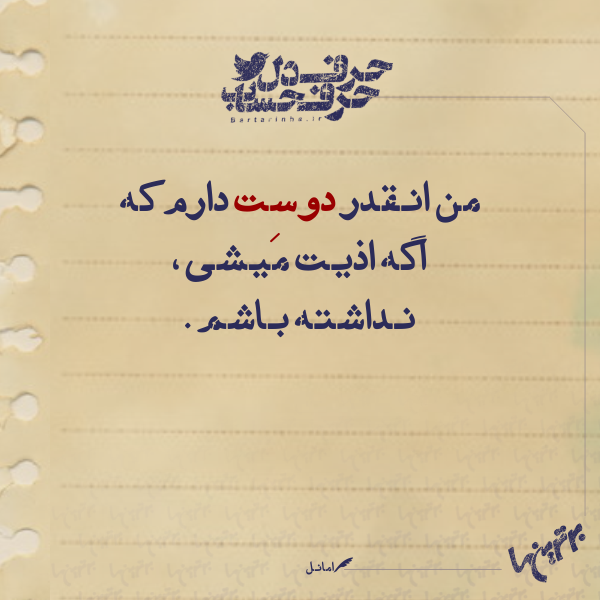 حرف دل
حرف حساب
Bartarinha.ir
من انقدر دوست دارم که
اگه اذیت مَیشی،
نداشته باشم.
امانل
برترین‌ها